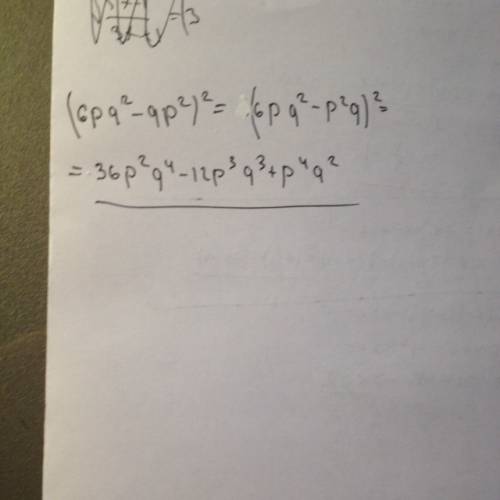 (6pq²-qp²)²= (6pq²-p²q)²=
= 36p²q⁴-12p³q³+p⁴q²